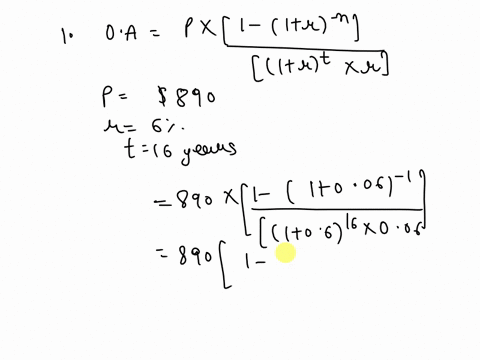 1. O.A = P × [1 - (1+r)^-n]
[(1+r)^t × r]
P = $890
r = 6%.
t = 16 years
= 890 × [1 - (1+0.06)^-1]
[((1+0.6)^16 × 0.06
= 890 [ 1 -